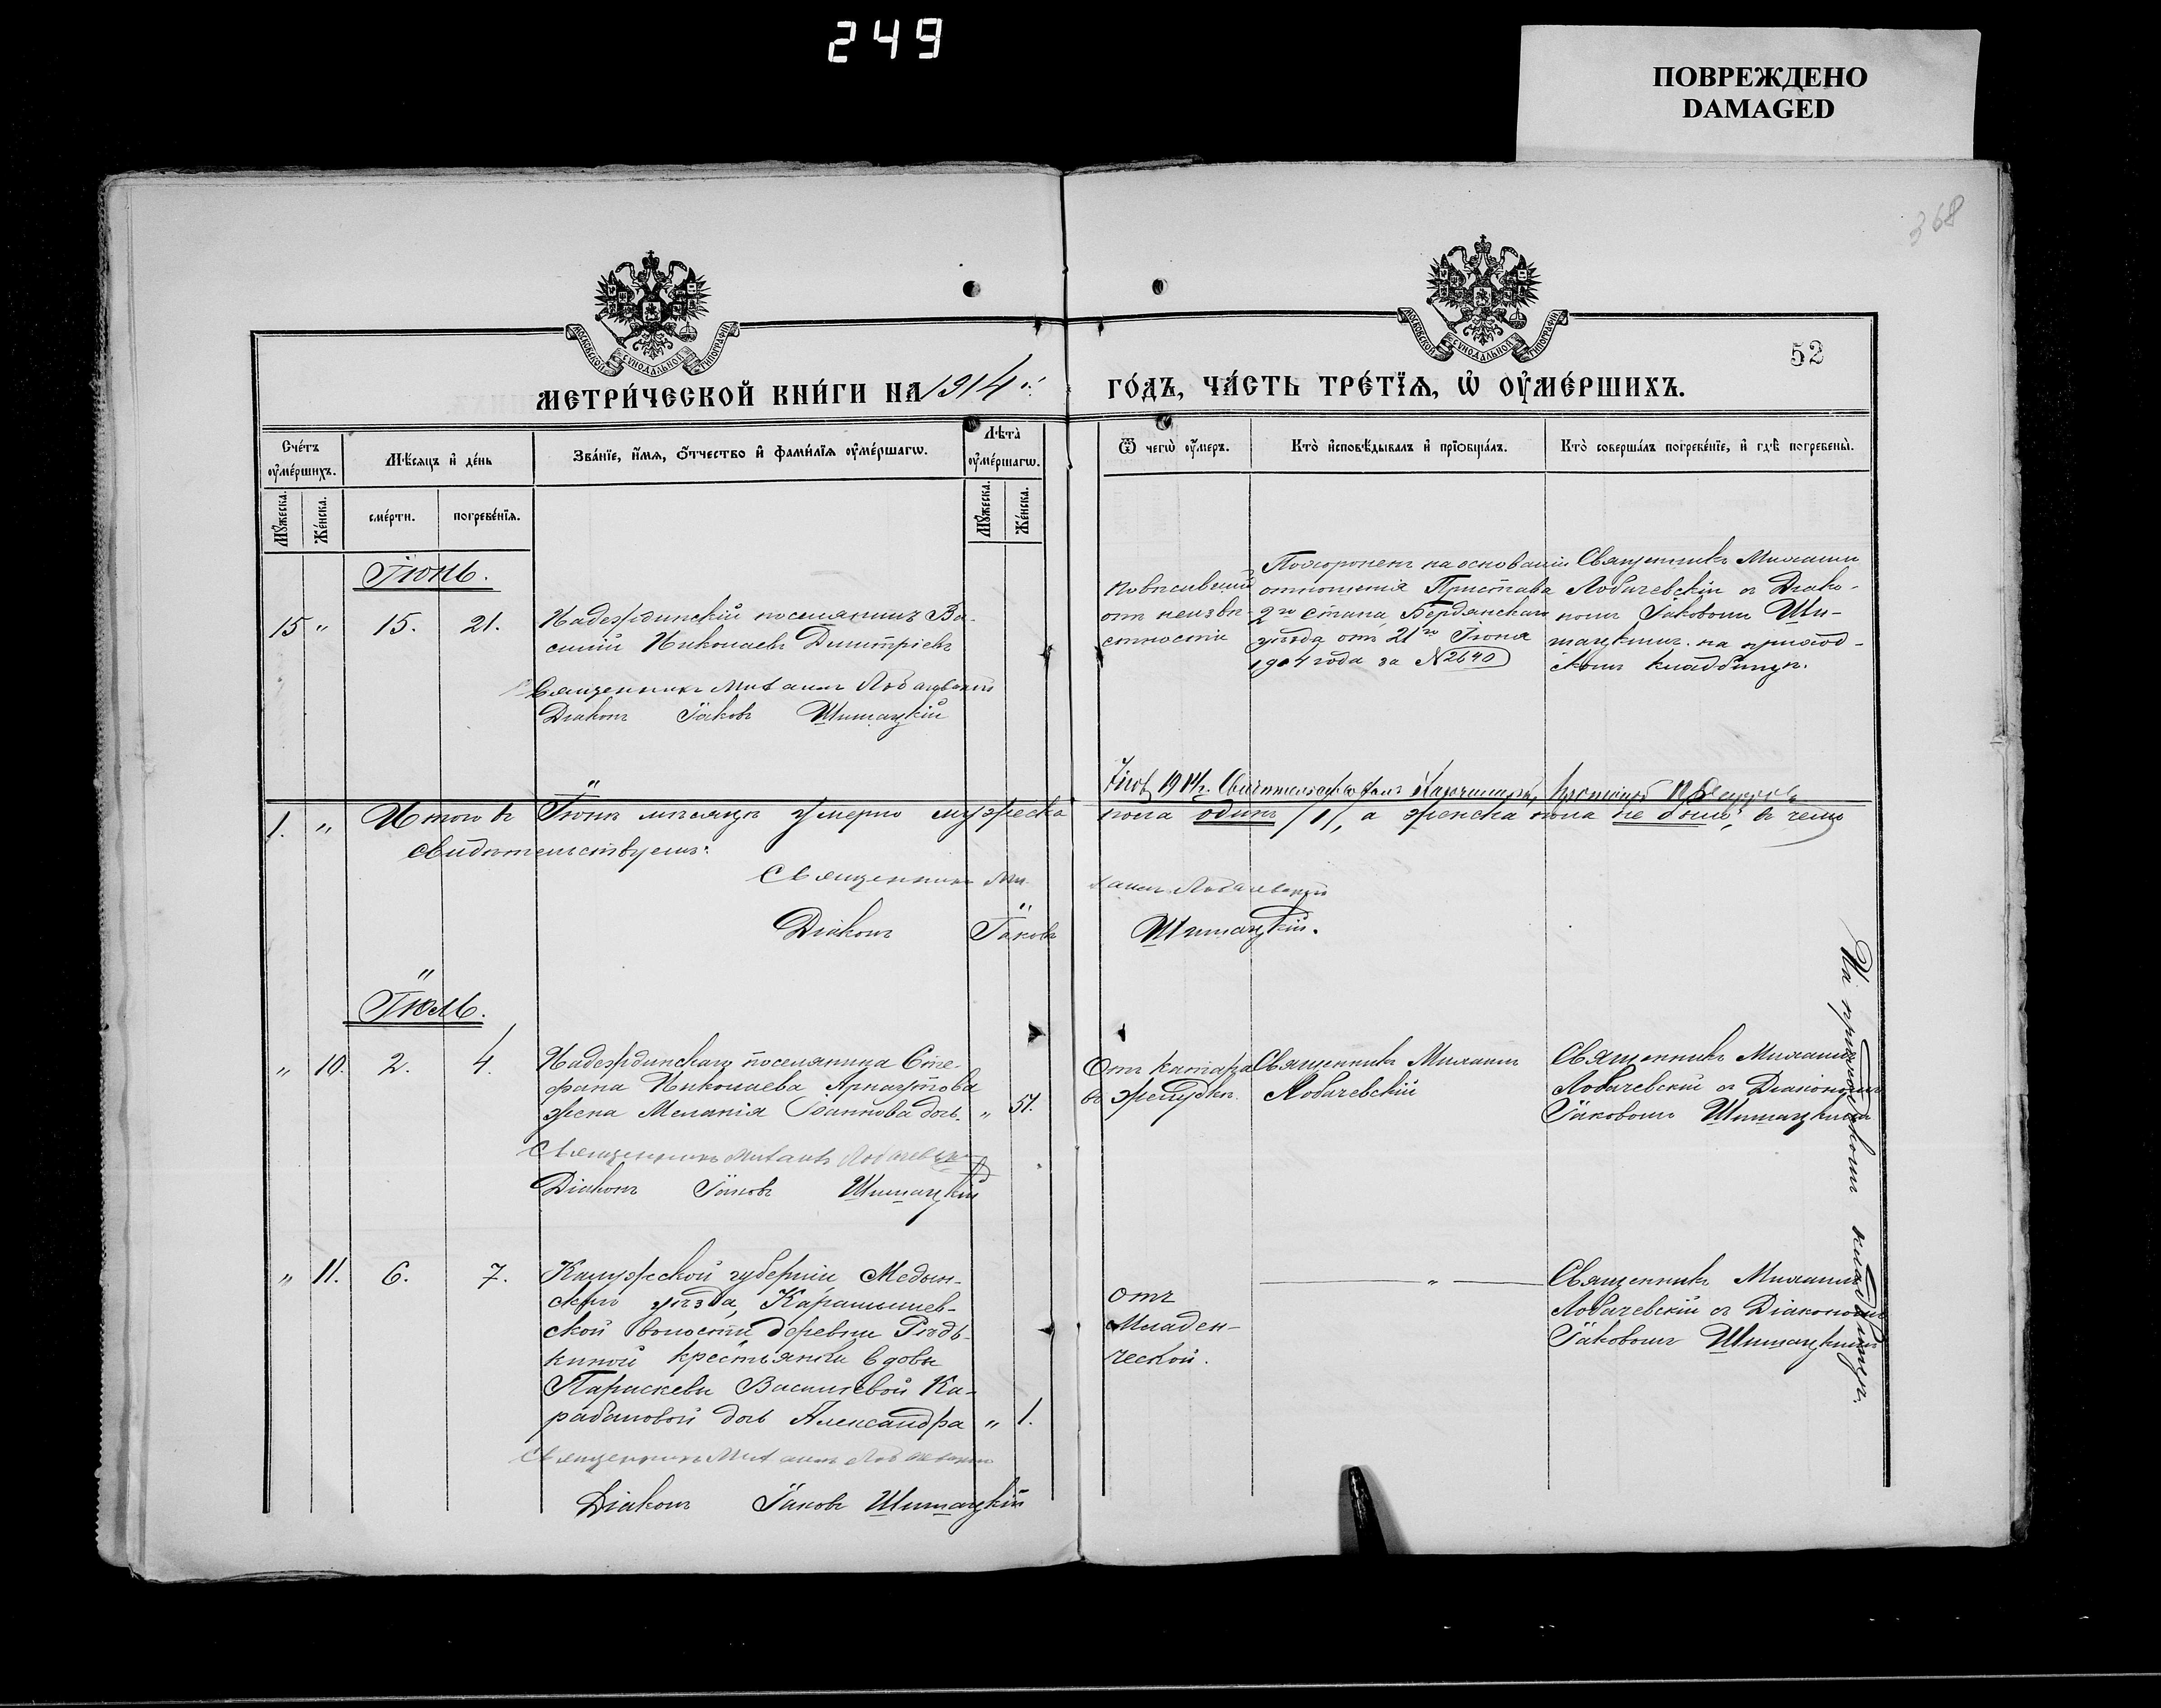 249
ПОВРЕЖДЕНО
DAMAGED
368
МОСКОВСКОЙ СѴНОДАЛЬНОЙ ТИПОГРАФІИ
МОСКОВСКОЙ СѴНОДАЛЬНОЙ ТИПОГРАФІИ
52
МЕТРИ́ЧЕСКОЙ КНИ́ГИ НА 1914й
ГО́ДЪ, ЧА́СТЬ ТРЕ́ТЇѦ, Ѡ҆ ОУ҆МЕ́РШИХЪ.
Сче́тъ оу҆ме́ршихъ.
Мѣ́сѧцъ и҆ де́нь
Зва́нїе, и҆́мѧ, ѻ҆́тчество и҆ фами́лїѧ оу҆ме́ршагѡ.
Лѣта̀ оу҆ме́ршагѡ.
Ѿ чегѡ̀ оу҆́меръ.
Кто̀ и҆сповѣ́дывалъ и҆ прїѡбща́лъ.
Кто̀ соверша́лъ погребе́нїе, и҆ гдѣ̀ погребены̀.
Мꙋ́жеска.
Же́нска.
сме́рти.
погребе́нїѧ.
Мꙋ́жеска.
Же́нска.
Іюнь.
15 " 15. 21.
Надеждинскій поселянинъ Ва-
силій Николаевъ Димитріевъ
Священникъ Михаилъ Лобачевскій
Діаконъ Іаковъ Шишацкій
Повѣсившій
отъ неизвѣ-
стности
Похороненъ на основаніи
отношенія Пристава
2го стана, Бердянскаго
уѣзда отъ 21го Іюня
1914 года за №2640
Священникъ Михаилъ
Лобачевскій съ Діако-
номъ Іаковомъ Ши-
шацкимъ. на приход-
скомъ кладбищѣ.
1914г.
1. " Итого въ Іюнѣ мѣсяцѣ умерло мужеска пола одинъ /1/, а женска пола не было, въ чемъ
свидѣтельствуемъ:
Священникъ Михаилъ Лобачевскій
Діаконъ Іаковъ Шишацкій.
Іюль.
" 10. 2. 4.
Надеждинскаго поселянина Сте-
фана Николаева Арнаутова
жена Меланія Іоаннова дочь. " 51.
Священникъ Михаилъ Лобачевскій
Діаконъ Іаковъ Шишацкій
Отъ катара
въ желудкѣ.
Священникъ Михаилъ
Лобачевскій
Священникъ Михаилъ
Лобачевскій съ Діакономъ
Іаковомъ Шишацкимъ
" 11. 6. 7.
Калужской губерніи Медын-
скаго уѣзда, Карамышев-
ской волости деревни Рѣдь-
киной крестьянки вдовы
Параскевы Васильевой Ка-
рабановой дочь Александра " 1.
Священникъ Михаилъ Лобачевскій
Діаконъ Іаковъ Шишацкій
отъ
Младен-
ческой.
"
Священникъ Михаилъ
Лобачевскій съ Діакономъ
Іаковомъ Шишацкимъ
На приходскомъ кладбищѣ.